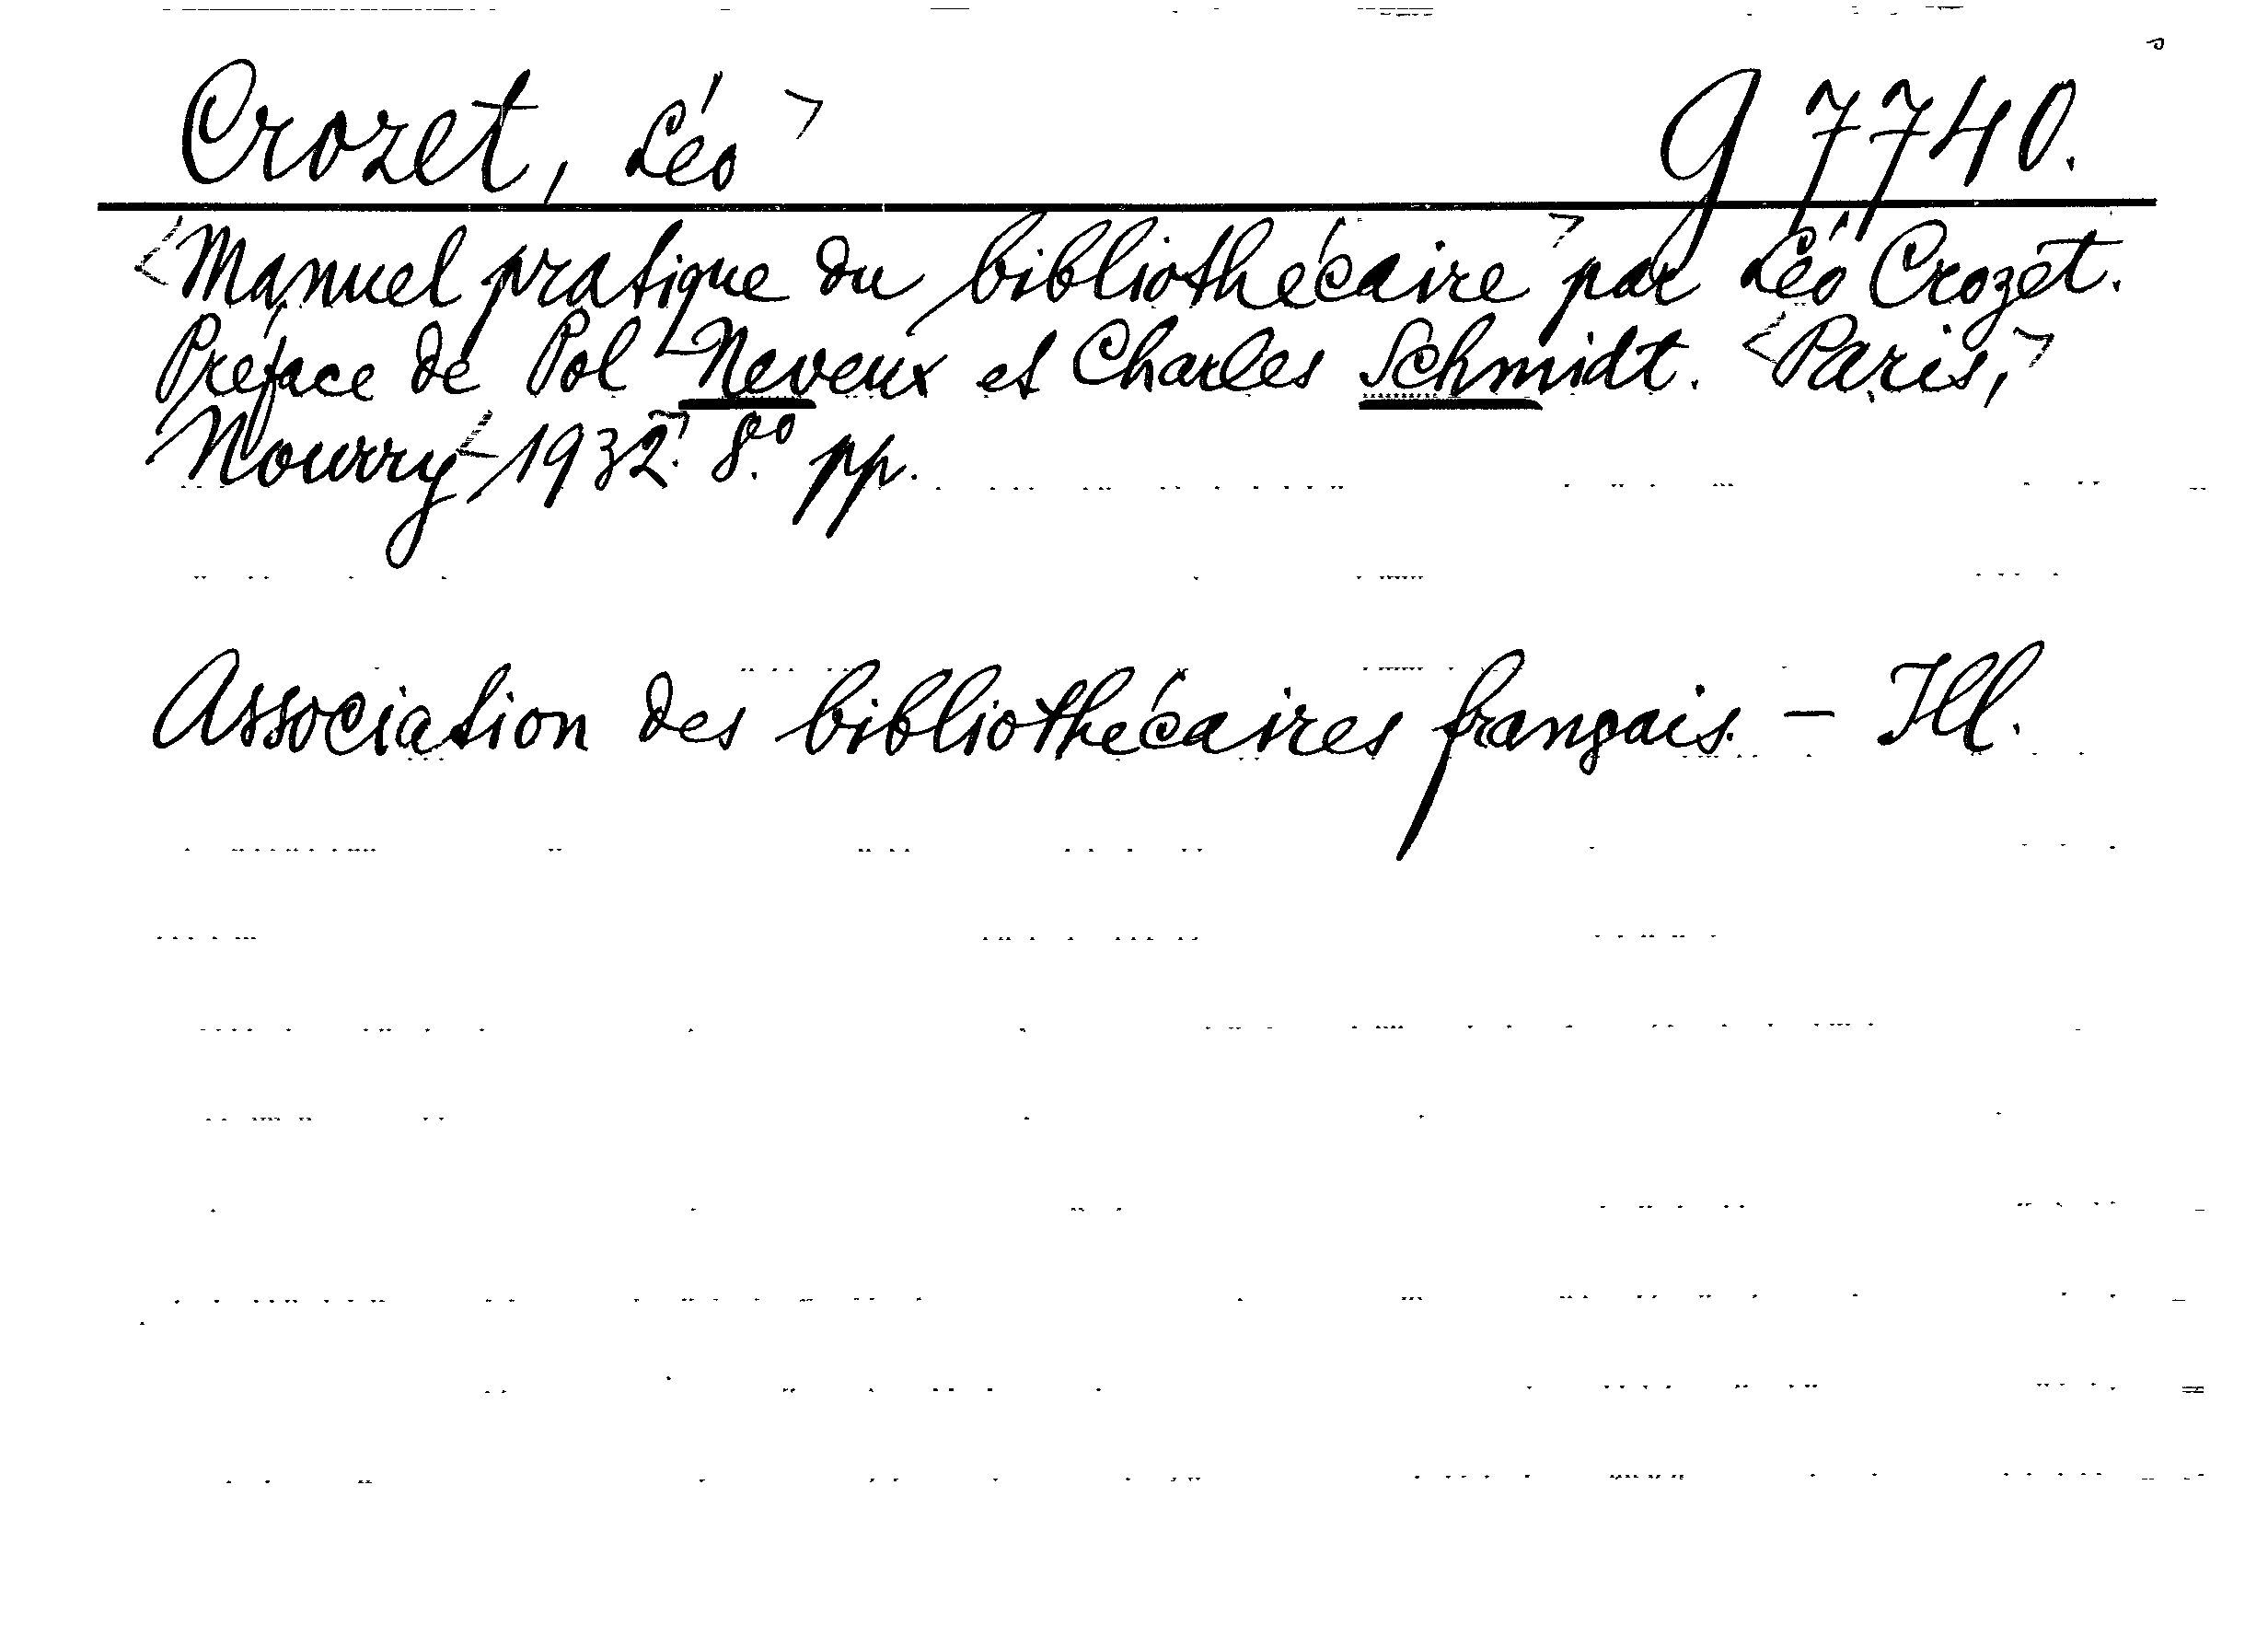 Crozet, Léo> g 7740.
<Manuel pratique du bibliothécaire> par Léo Crozet.
Préface de Pol Neveux et Charles Schmidt. <Paris,>
Nourry <1932.> 8.° pp.
Association des bibliothécaires français. - Ill.